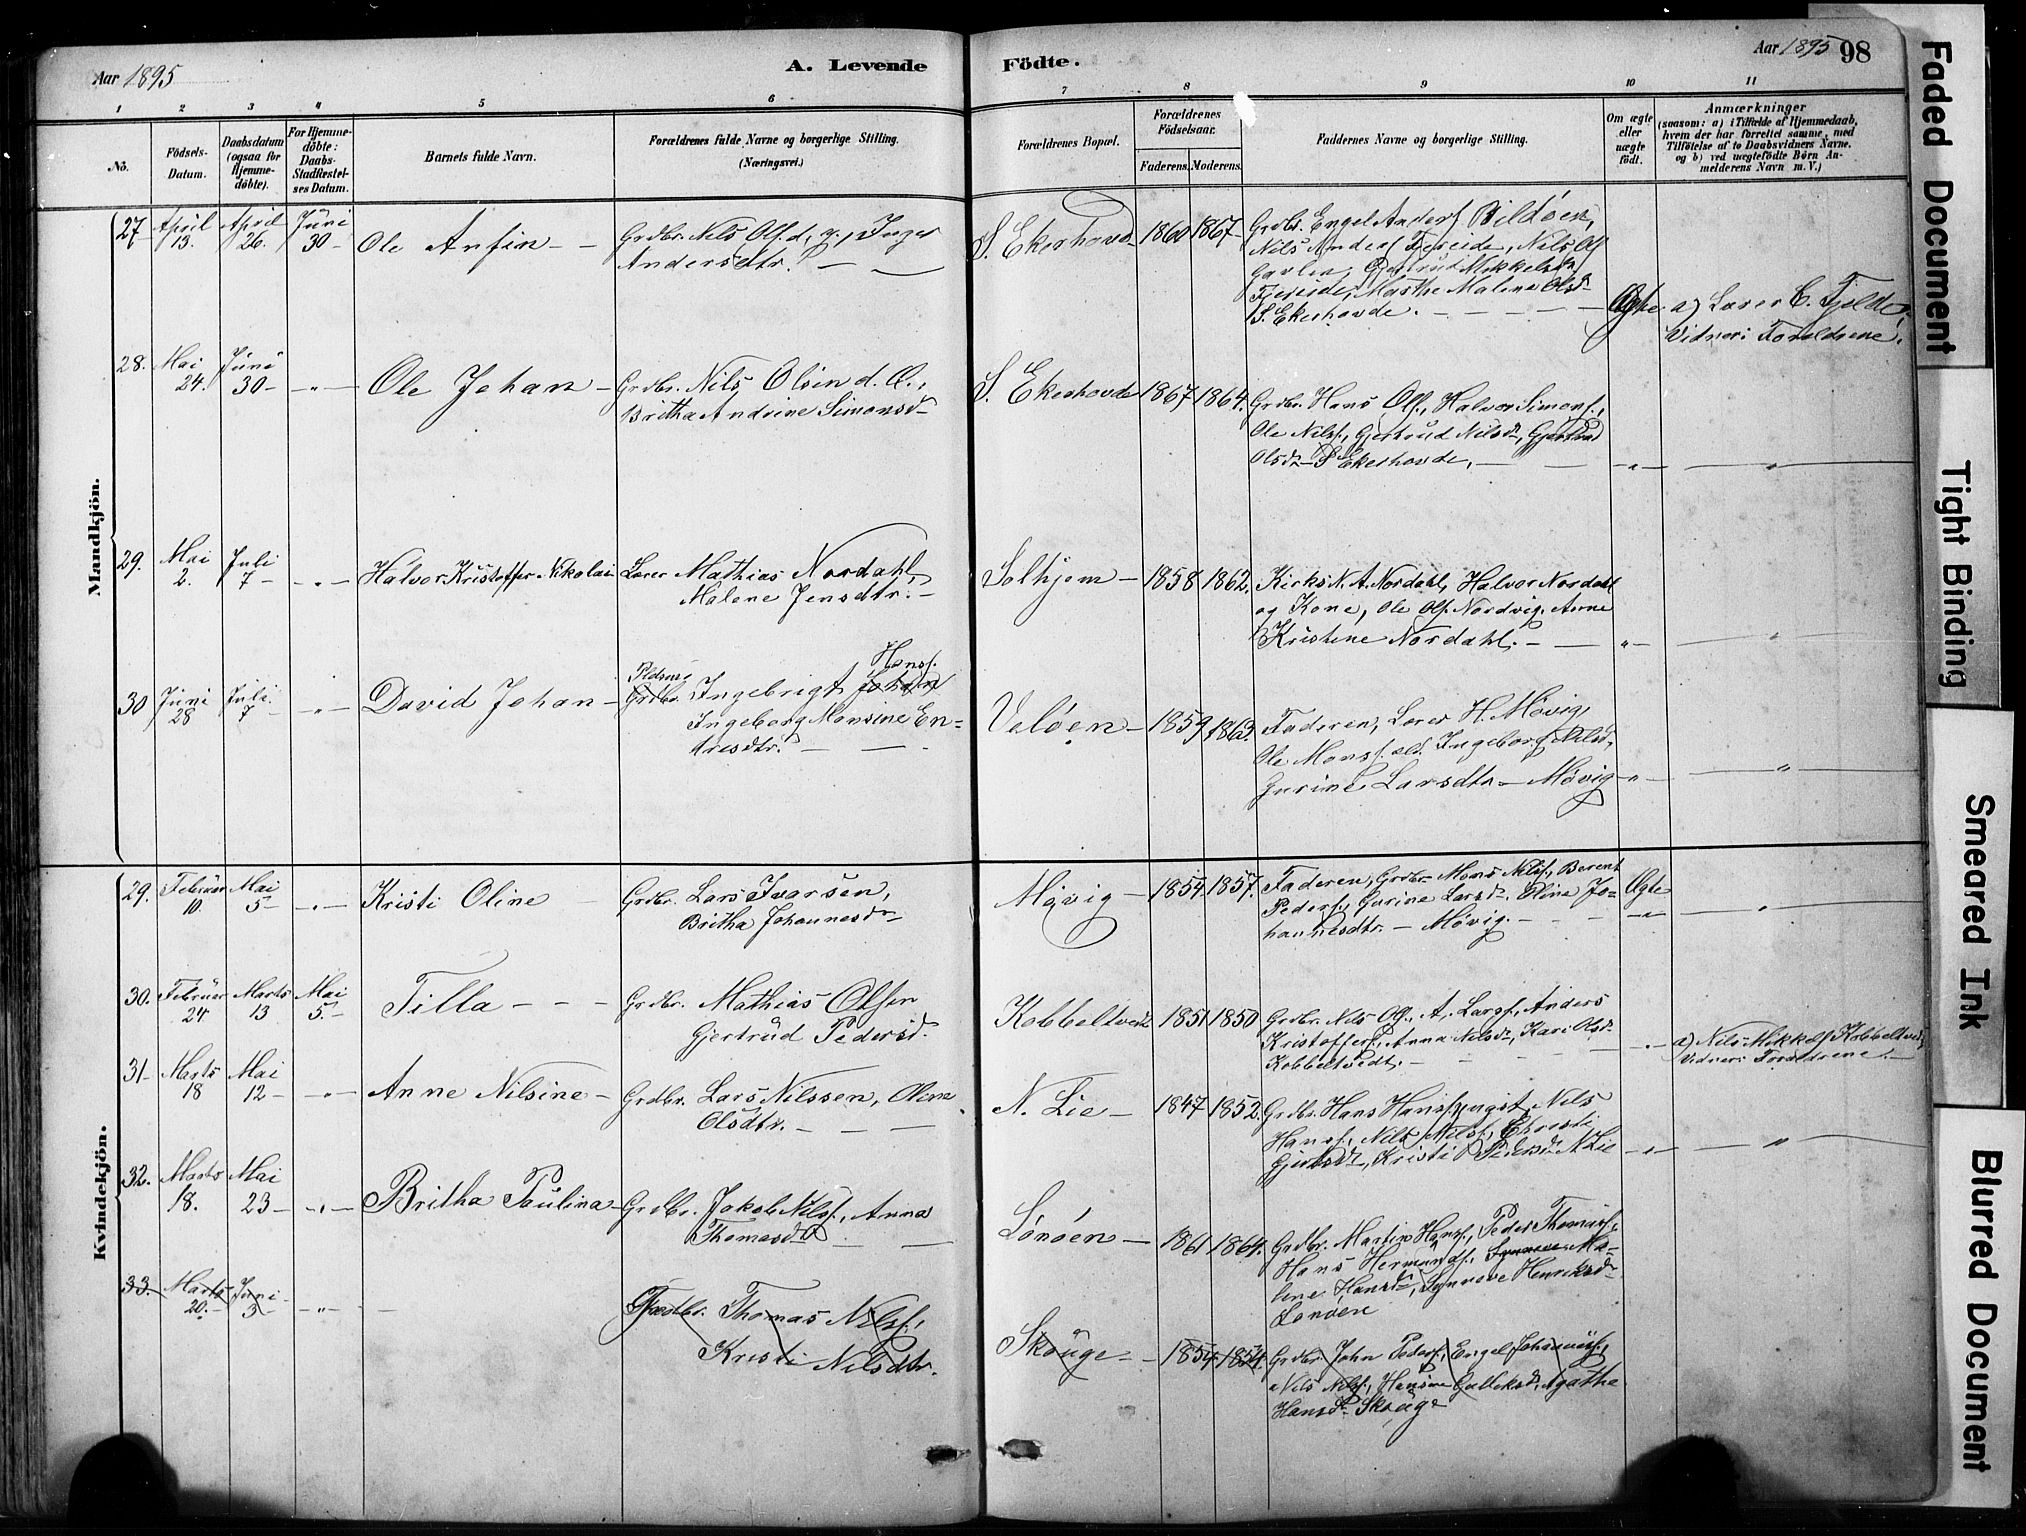 Aar 1895
A. Levende
Födte.
Aar 1895 98
1 2 3 4 5 6 7 8 9 10 11
Nô.
Födsels-
Datum.
Daabsdatum
(ogsaa for
Hjemme-
döbte).
For Hjemme-
döbte:
Daabs-
Stadfæstel-
ses Datum.
Barnets fulde Navn.
Forældrenes fulde Navne og borgerlige Stilling.
(Næringsvei.)
Forældrenes Bopæl.
Forældrenes
Födselsaar.
Faderens. Moderens.
Faddernes Navne og borgerlige Stilling.
Om ægte
eller
uægte
födt.
Anmærkninger
(saasom: a) i Tilfælde af Hjemmedaab,
hvem der har forrettet samme, med
Tilföielse af to Daabsvidners Navne.
og b) ved uægtefödte Börn An-
melderens Navn m. V.)
Mandkjön.
27 April 13. April 26. Juni 30 Ole Anfin Grdbr. Nils Ols. d. y., Inger
Andersdtr.
S. Ekerhovd 1860 1867 Grdbr. Engel Anders. Bildöen,
Nils Anders. Fjereide, Nils Ols.
Gavlen, Gjertrud Mikkelsdr
Fjereide, Marthe Malene Olsdr
S. Ekerhovde. Ægte a) Lærer C. Fjelde,
Vidner: Forældrene.
28. Mai 24. Juni 30 " Ole Johan Grdbr. Nils Olsen d. Æ.,
Britha Andrine Simonsdr
S. Ekerhovde 1867 1864. Grdbr. Hans Ols., Halvor Simons.,
Ole Nils., Gjertrud Nilsdr, Gjertrud
Olsdr S Ekerhovde. " "
29. Mai 2. Juli 7 " Halvor Kristoffer Nikolai Lærer Mathias Nordahl,
Malene Jensdtr.
Solhjem 1858 1862. Kirks. N. A. Nordahl, Halvor Nordahl
og Kone, Ole Ols. Nordvig, Anne
Kristine Nordahl. " "
30 Juni 28 Juli 7 " David Johan Grdbr. Ingebrigt Johan Hans.
Ingeborg Monsine En-
dresdtr.
Velöen 1859 1863. Faderen, Lærer H. Møvig,
Ole Mons. æld. Ingeborg Nilsd,
Gurine Larsdtr Møvig " "
Kvindekjön.
29. Februar 10. Mai 5 " Kristi Oline Grdbr. Lars Ivarsen,
Britha Johannesdr
Møvig 1854 1857. Faderen, Grdbr Mons Nils., Berent
Peders., Gurine Larsdr. Oline Jo-
hannesdtr. Møvig. Ægte " "
30. Februar 24 Marts 13 Mai 5. Tilla Grdbr. Mathias Olsen
Gjertrud Pedersdr.
Kobbeltvedt 1851 1850 Grdbr. Nils Ols., A. Lars., Anders
Kristoffers., Anna Nilsdr, Kari Olsdr
Kobbeltvedt. " a) Nils Mikkels. Kobbeltvedt,
Vidner: Forældrene.
31 Marts 18 Mai 12 " Anne Nilsine Grdbr. Lars Nilssen, Oline
Olsdtr.
N. Lie 1847 1852. Grdbr. Hans Hans. yngst, Nils
Hans., Nils Nils., Christi
Kristi Pedersdr N Lie " "
32. Marts 18. Mai 23 " Britha Paulina Grdbr. Jakob Nils., Anna
Thomasdtr
Lönöen 1861 1864. Grdbr. Martin Hans., Peder Thomas.,
Hans Hermunds., Synneve Ma-
lene Hansdr, Synnove Henriksdr
Lönöen
33. Marts 20. Juni 3 " Grdbr. Thomas Nils.,
Kristi Nilsdtr.
Skouge 1854 1854. Grdbr. John Peders., Engel Johannes.,
Nils Nils., Hansine Gulleksd., Agathe
Hansdr Skouge
Faded Document
Tight Binding
Smeared Ink
Blurred Document